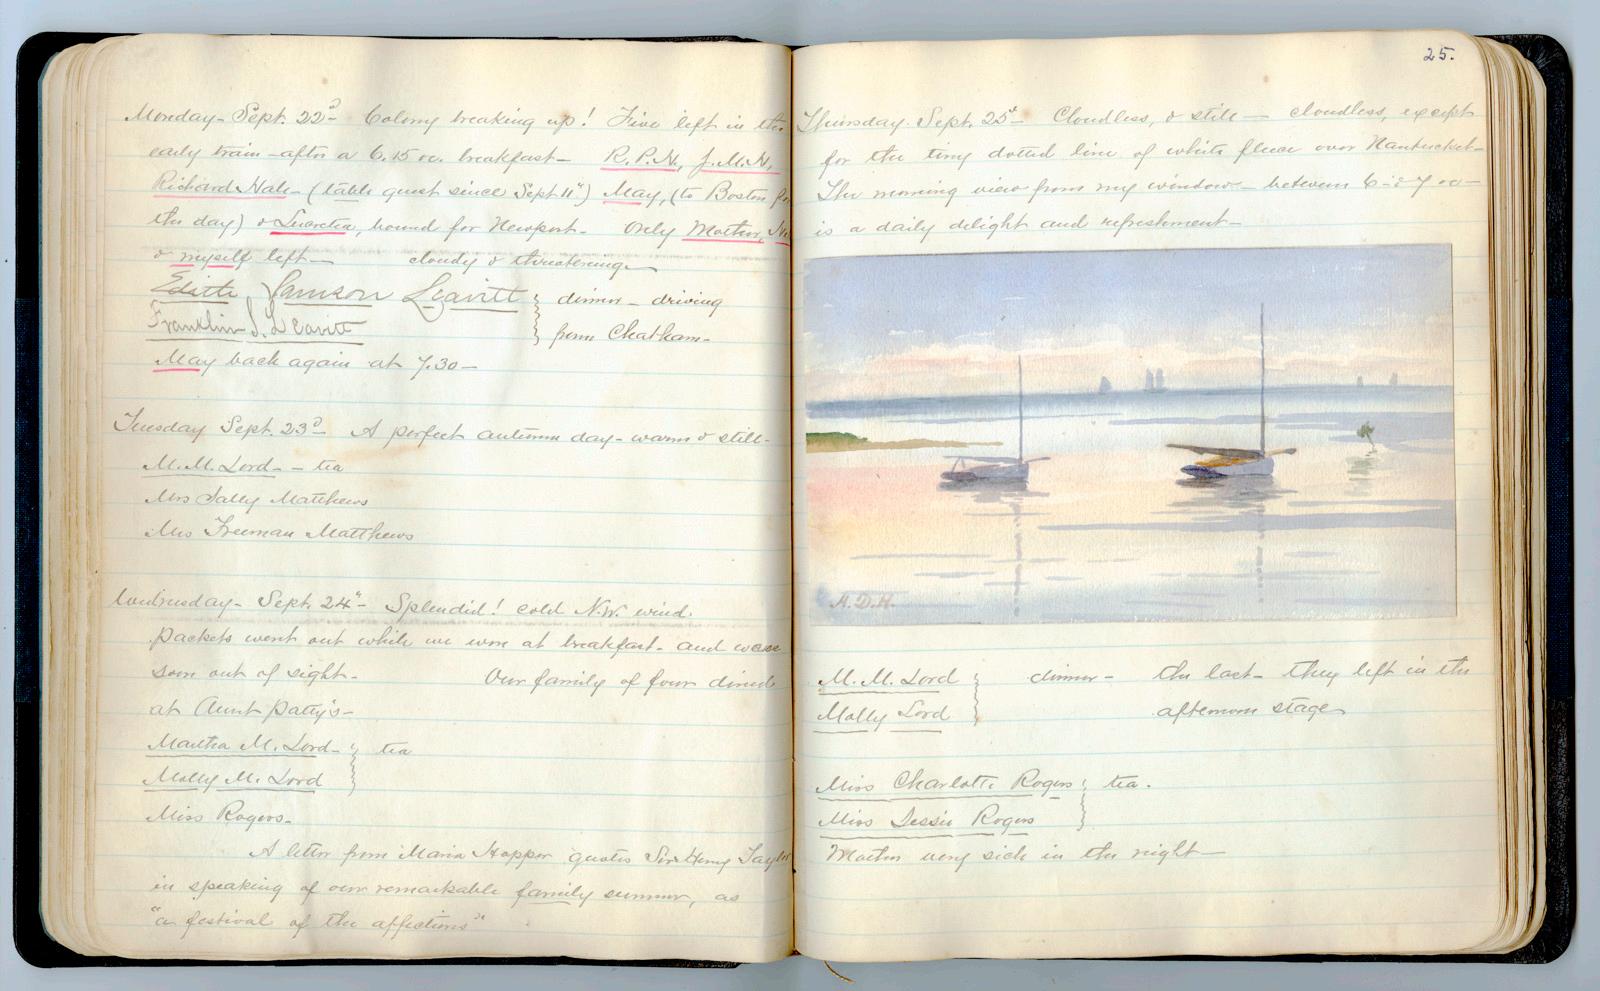 Monday - Sept. 22d - Colony breaking up! Five left in the
early train - after a 6.15 oc. breakfast - R.P.H., J.M.H.,
Richard Hale - (table guest since Sept 11th) May, (to Boston for
the day) & Lucretia, bound for Newport - Only Mother,
& myself left - cloudy & threatening -
Edith Jamson Leavitt } dinner - driving
Franklin J. Leavitt } from Chatham -
May back again at 7.30 -
Tuesday Sept. 23d - A perfect autumn day - warm & still -
M. M. Lord - - tea
Mrs Sally Matthews
Mrs Freeman Matthews
Wednesday - Sept. 24th - Splendid! cold N.W. wind.
Packets went out while we were at breakfast - and were
soon out of sight - Our family of four dined
at Aunt Patty's -
Martha M. Lord - } tea
Molly M. Lord }
Miss Rogers -
A letter from Maria Hopper quotes Sir Henry Taylor
in speaking of our remarkable family summer, as
"a festival of the affections"
25.
Thursday. Sept. 25th - Cloudless, & still - cloudless, except
for the tiny dotted line of white fleece over Nantucket -
The morning view from my window - between 6 & 7 oc -
is a daily delight and refreshment -
A.D.H.
M. M. Lord } dinner - the last - they left in the
Molly Lord } afternoon stage
Miss Charlotte Rogers } tea.
Miss Dessie Rogers }
Mother very sick in the night -